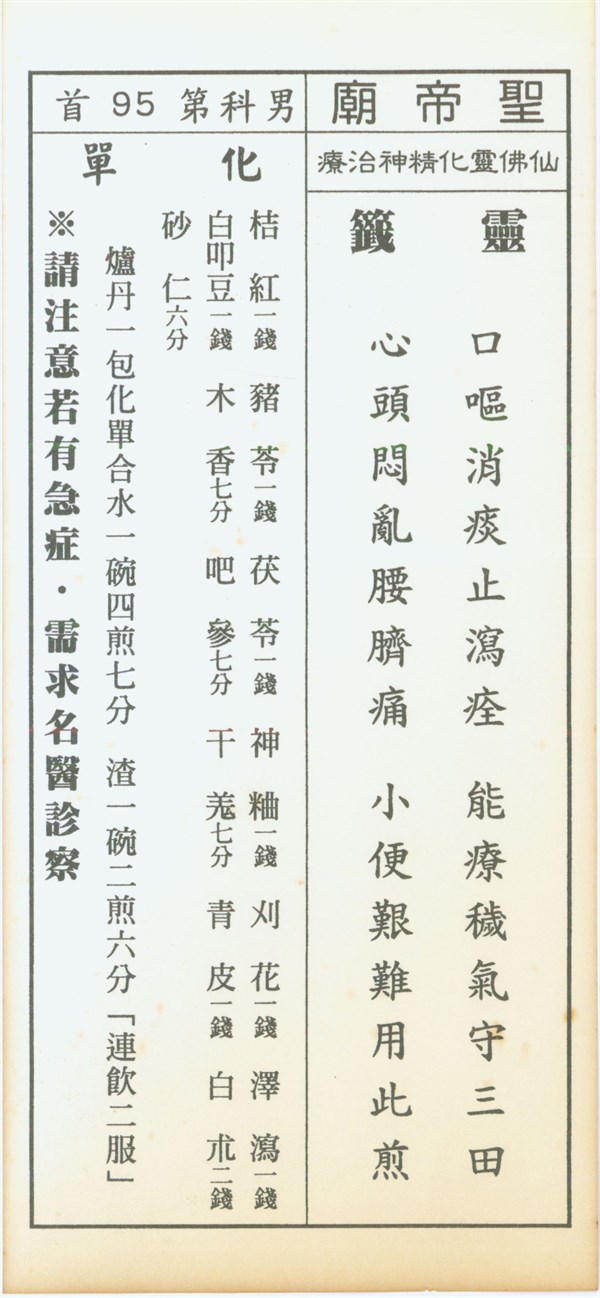 聖帝廟
仙佛靈化精神治療
靈籤
口嘔消痰止瀉痊 能療穢氣守三田
心頭悶亂腰臍痛 小便艱難用此煎
男科第95首
化單
桔紅一錢 豬苓一錢 茯苓一錢 神粬一錢 刈花一錢 澤瀉一錢
白叩豆一錢 木香七分 吧參七分 干羗七分 青皮一錢 白朮二錢
砂仁六分
爐丹一包化單合水一碗四煎七分 渣一碗二煎六分「連飲二服」
※請注意若有急症・需求名醫診察